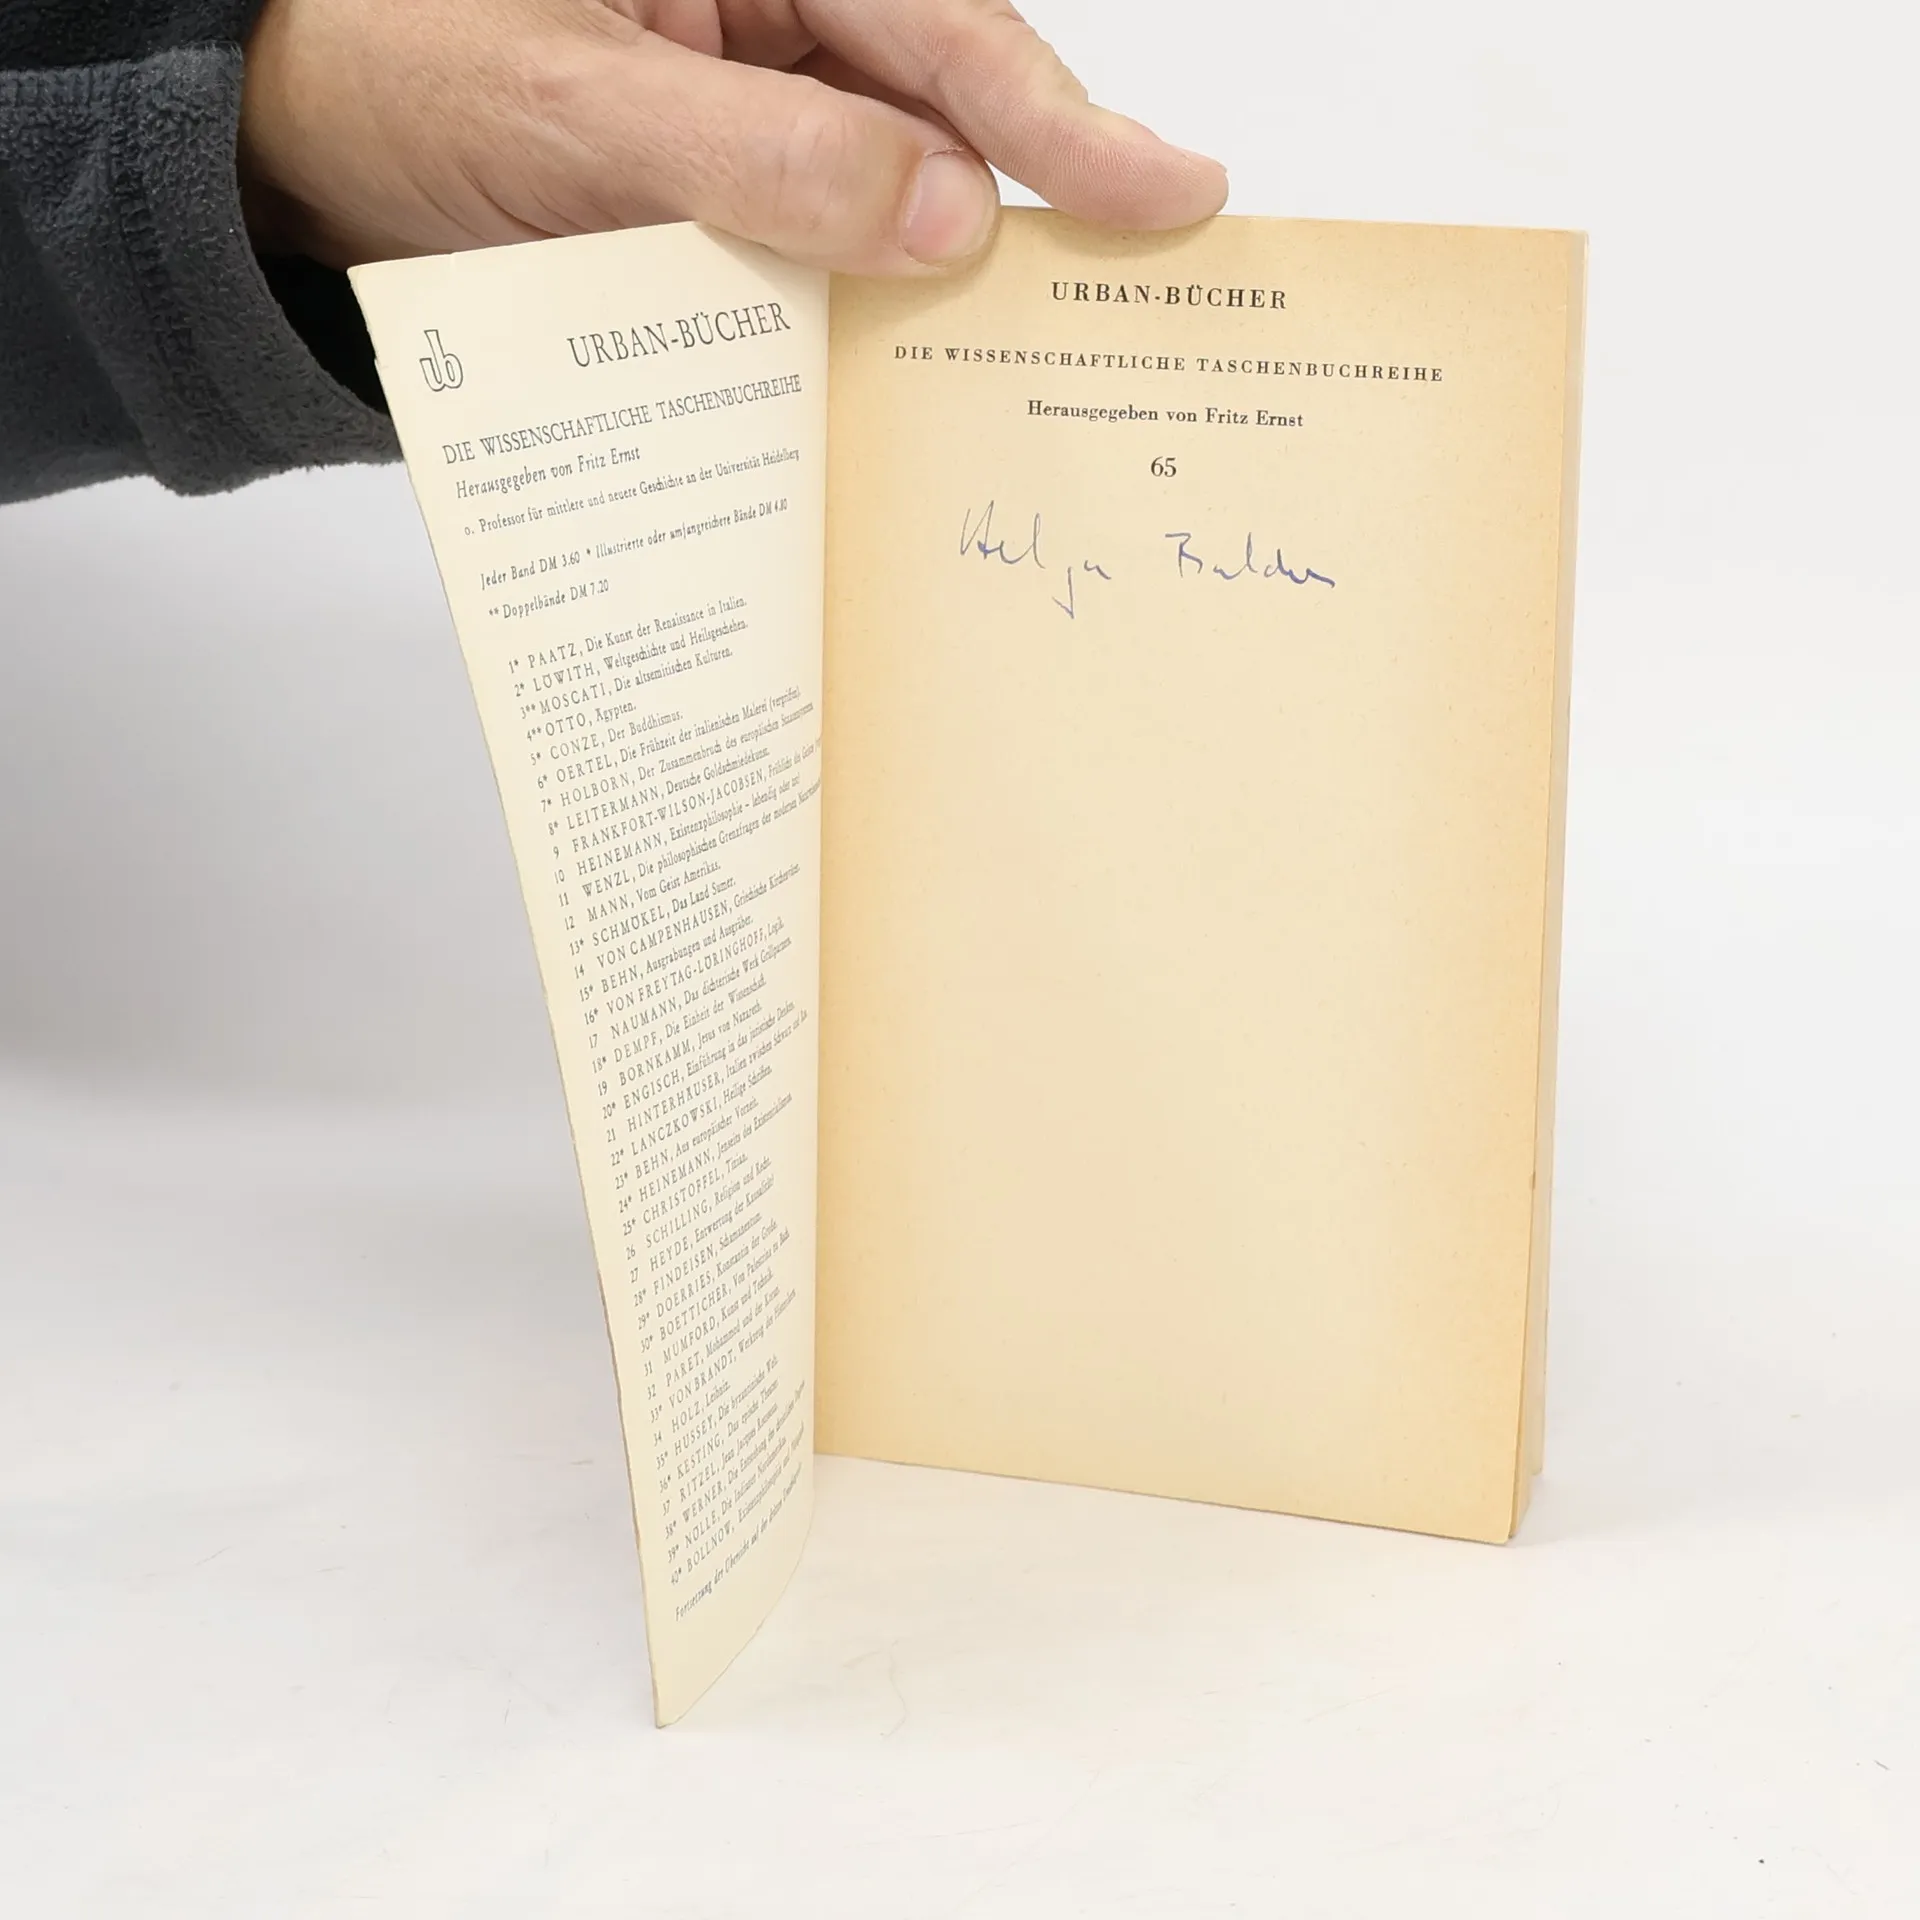 ub
URBAN-BÜCHER
DIE WISSENSCHAFTLICHE TASCHENBUCHREIHE
Herausgegeben von Fritz Ernst
o. Professor für mittlere und neuere Geschichte an der Universität Heidelberg
Jeder Band DM 3.60 * Illustrierte oder umfangreichere Bände DM 4.80
** Doppelbände DM 7.20
1* PAATZ, Die Kunst der Renaissance in Italien.
2* LÖWITH, Weltgeschichte und Heilsgeschehen.
3** MOSCATI, Die altsemitischen Kulturen.
4** OTTO, Ägypten.
5* CONZE, Der Buddhismus.
6* OERTEL, Die Frühzeit der italienischen Malerei (vergriffen).
7* HOLBORN, Der Zusammenbruch des europäischen Staatensystems
8* LEITERMANN, Deutsche Goldschmiedekunst.
9 FRANKFORT-WILSON-JACOBSEN, Frühlicht des Geistes
10 HEINEMANN, Existenzphilosophie – lebendig oder tot?
11 WENZL, Die philosophischen Grenzfragen der modernen
12 MANN, Vom Geist Amerikas.
13* SCHMÖKEL, Das Land Sumer.
14 VON CAMPENHAUSEN, Griechische Kirchenväter.
15* BEHN, Ausgrabungen und Ausgräber.
16* VON FREYTAG-LÖRINGHOFF, Logik.
17 NAUMANN, Das dichterische Werk Grillparzers.
18* DEMPF, Die Einheit der Wissenschaft.
19 BORNKAMM, Jesus von Nazareth.
20* ENGISCH, Einführung in das juristische Denken.
21 HINTERHÄUSER, Italien zwischen Schwarz und Rot
22* LANCZKOWSKI, Heilige Schriften.
23* BEHN, Aus europäischer Vorzeit.
24* HEINEMANN, Jenseits des Existentialismus.
25* CHRISTOFFEL, Tizian.
26 SCHILLING, Religion und Recht.
27 HEYDE, Entwertung der Kausalität?
28* FINDEISEN, Schamanentum.
29* DOERRIES, Konstantin der Große.
30* BOETTICHER, Von Palestrina zu Bach
31 MUMFORD, Kunst und Technik.
32 PARET, Mohammed und der Koran.
33* VON BRANDT, Werkzeug des Historikers
34 HOLZ, Leibniz.
35* HUSSEY, Die byzantinische Welt.
36* KESTING, Das epische Theater.
37 RITZEL, Jean Jacques Rousseau.
38* WERNER, Die Entstehung des christlichen Dogmas
39* NÖLLE, Die Indianer Nordamerikas.
40* BOLLNOW, Existenzphilosophie und Pädagogik
Fortsetzung der Übersicht auf der dritten Umschlagseite
URBAN-BÜCHER
DIE WISSENSCHAFTLICHE TASCHENBUCHREIHE
Herausgegeben von Fritz Ernst
65
Helga